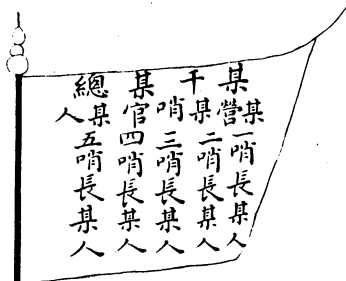 某營某一哨長某人
千某二哨長某人
哨三哨長某人
某官四哨長某人
總某人五哨長某人